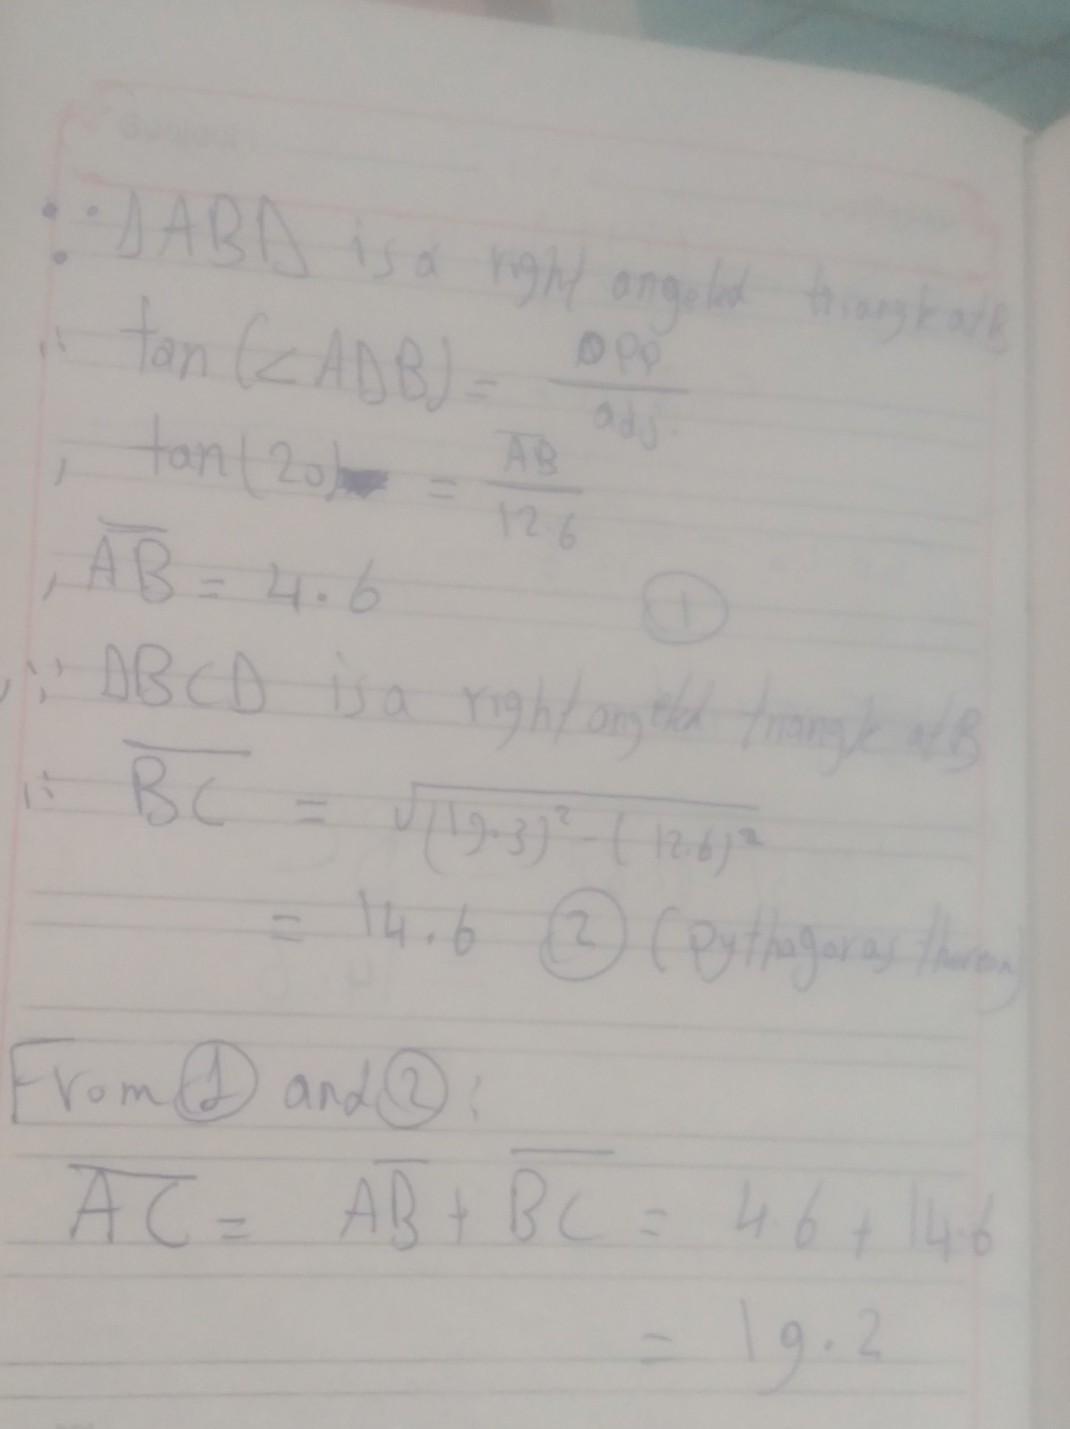 ∵ ΔABD is a right angeled triangle at B
∴ tan(<ADB) = opp/adj.
, tan(20) = AB/12.6
, AB = 4.6 ①
, ∵ ΔBCD is a right angeled triangle at B
∴ BC = √(19.3)² - (12.6)²
= 14.6 ② (pythagoras
From ① and ② :
AC = AB + BC = 4.6 + 14.6
= 19.2